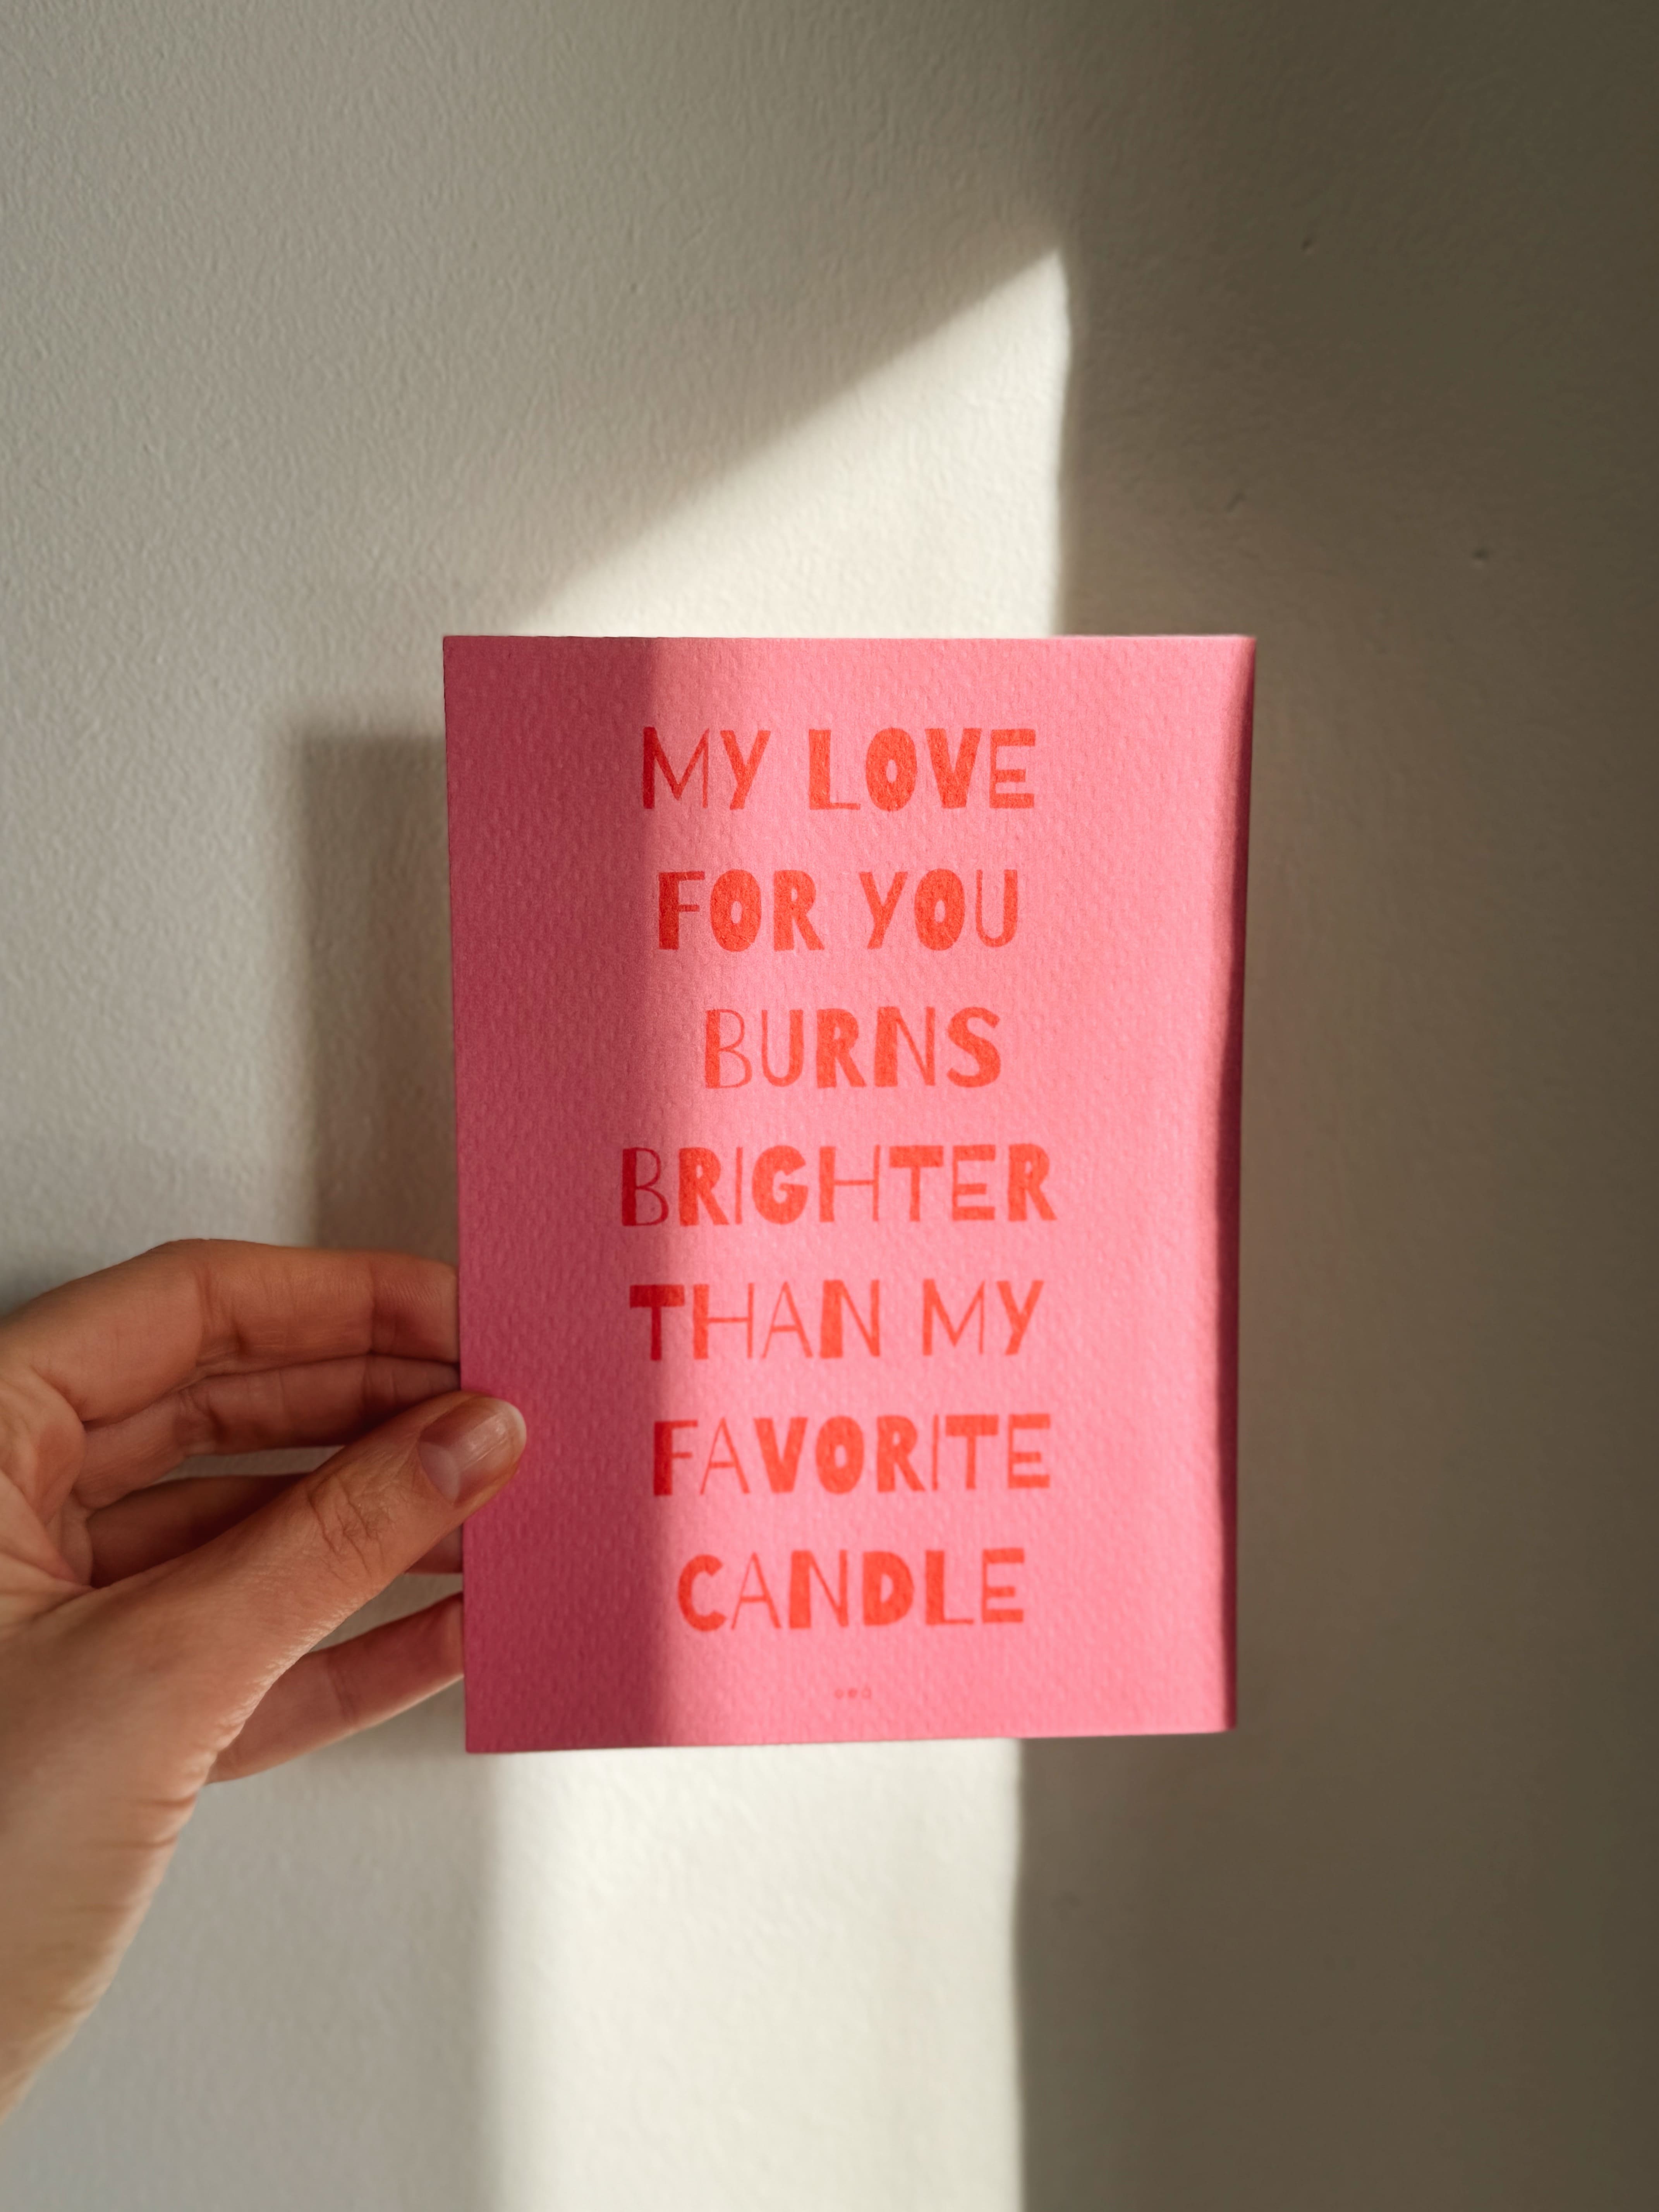 MY LOVE
FOR YOU
BURNS
BRIGHTER
THAN MY
FAVORITE
CANDLE